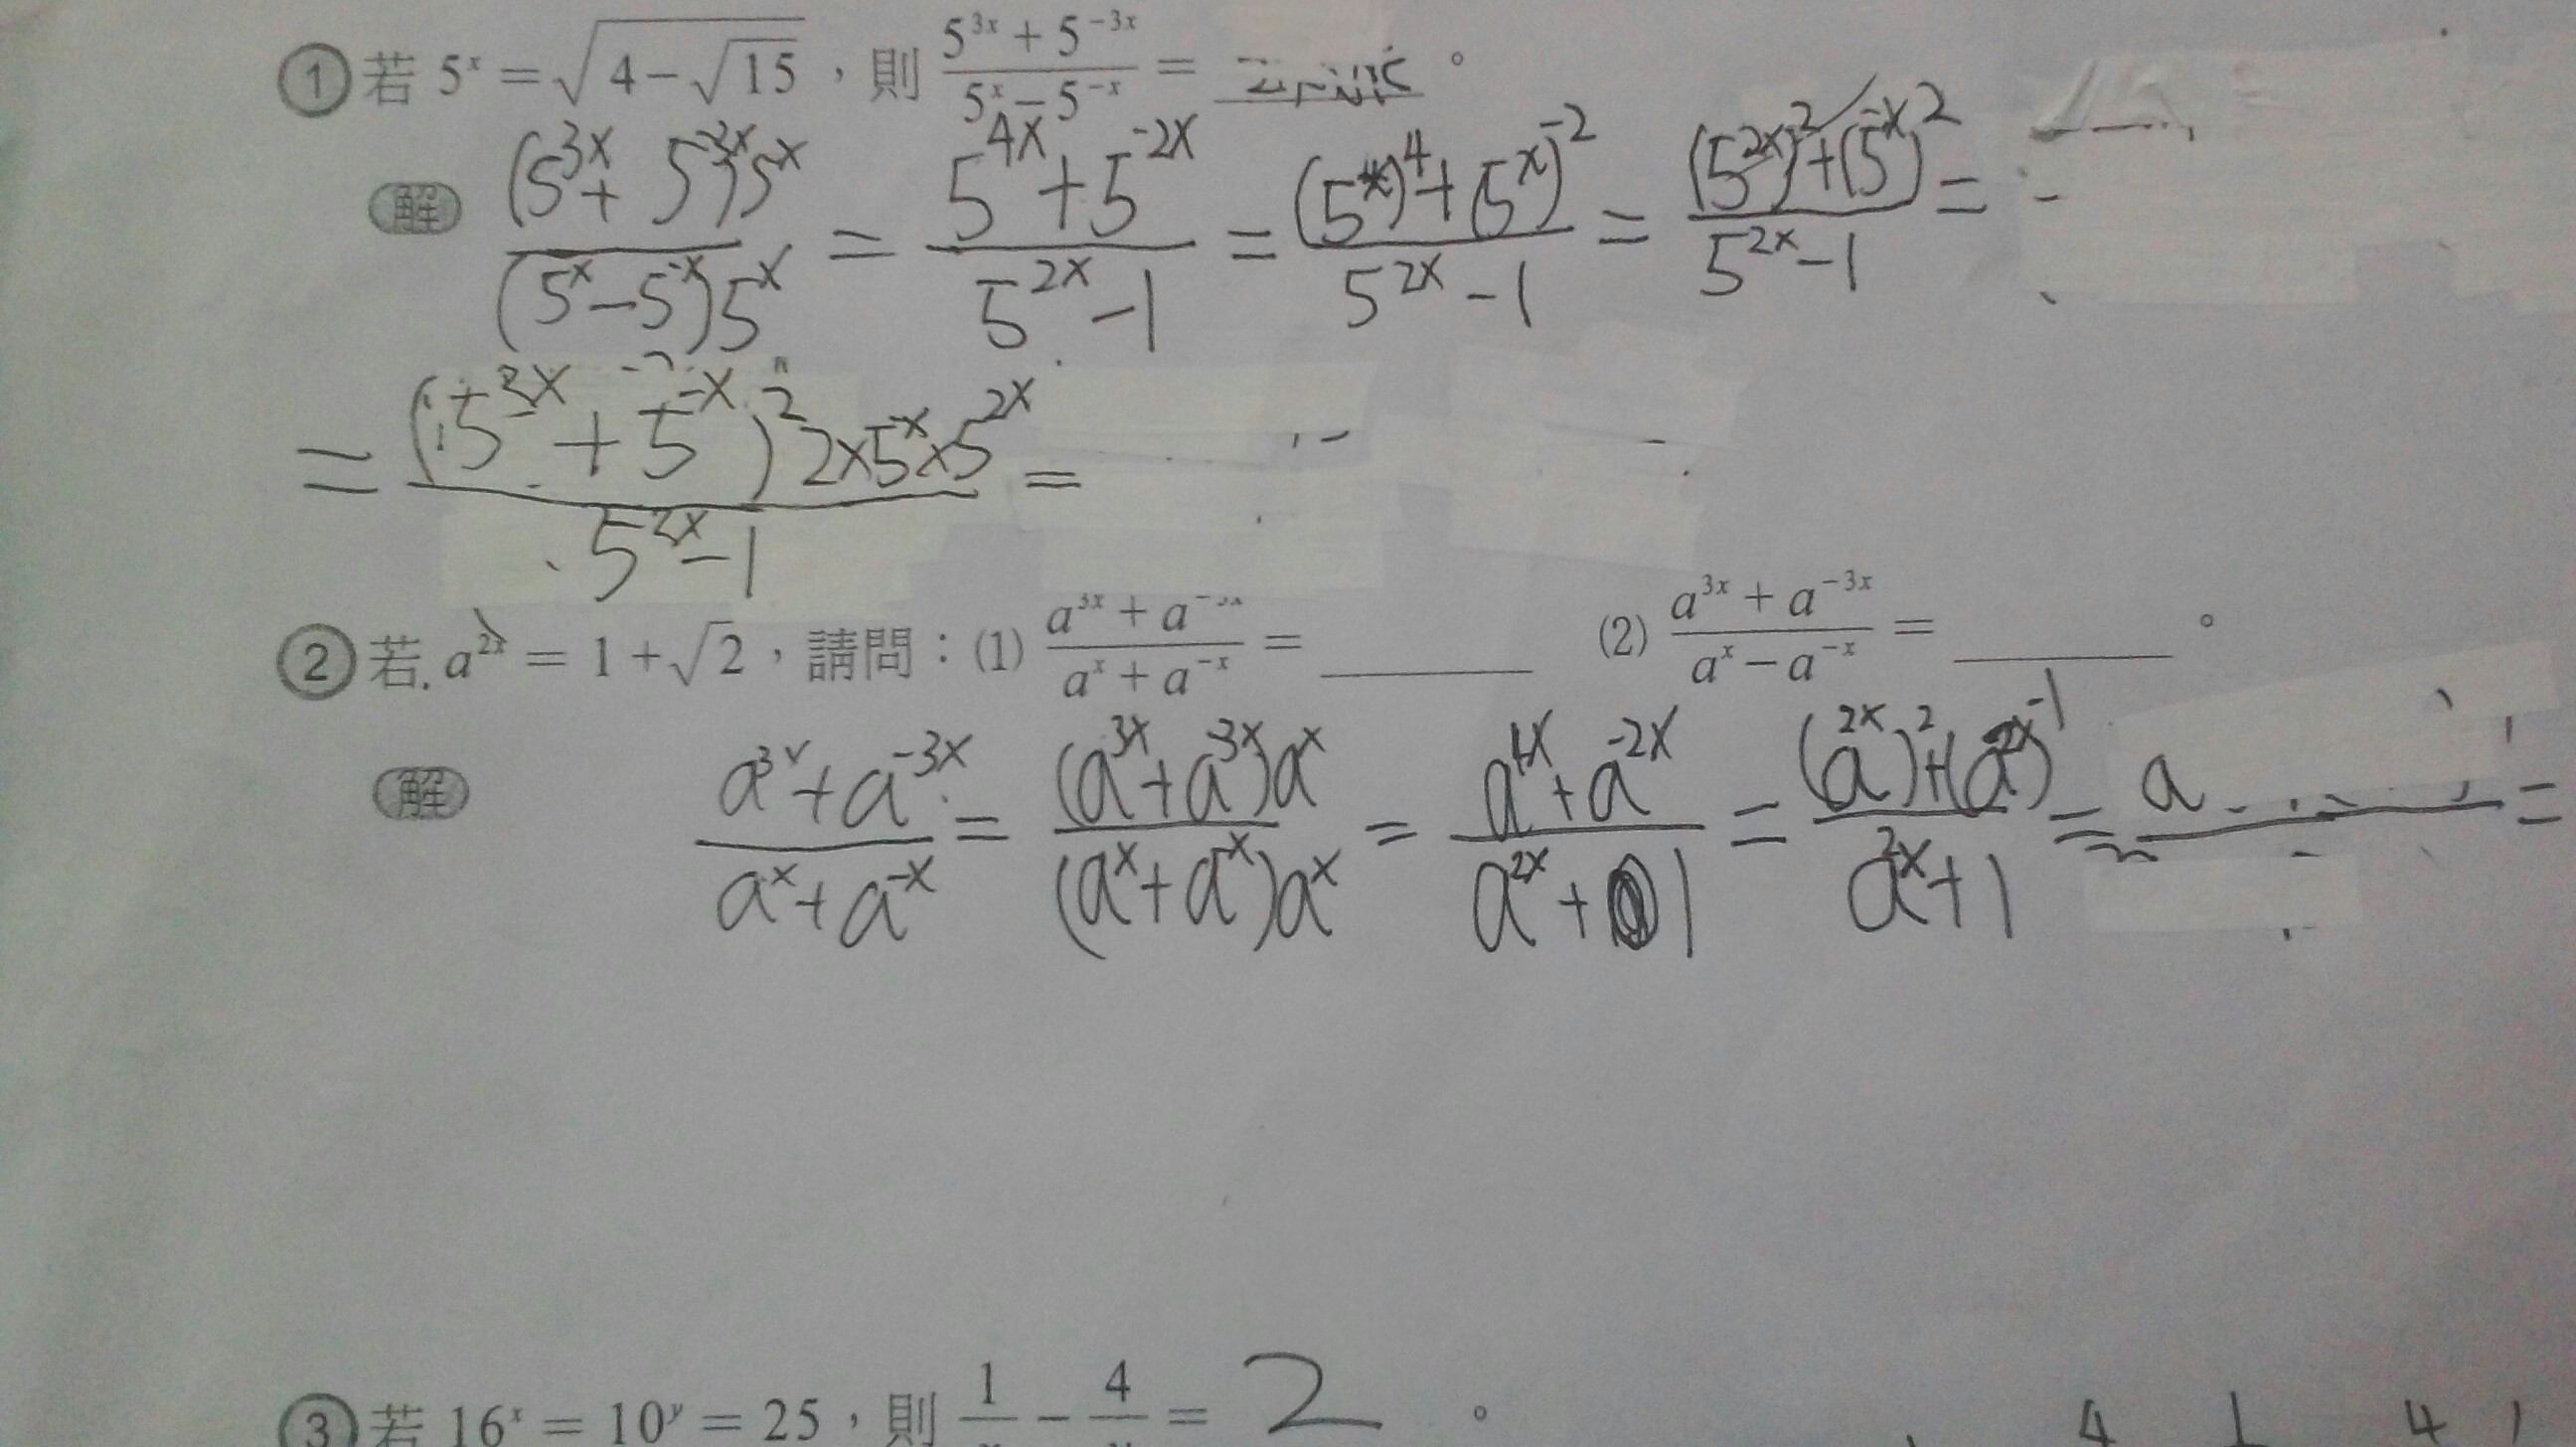 ① 若 5^x = √(4 − √15)，則 (5^{3x} + 5^{-3x}) / (5^x − 5^{-x}) = 。
解 (5^{3x} + 5^{-3x})5^x / (5^x − 5^{-x})5^x = (5^{4x} + 5^{-2x}) / (5^{2x} − 1) = ((5^x)^4 + (5^x)^{-2}) / (5^{2x} − 1) = ((5^{2x})^2 + (5^{-x})^2) / (5^{2x} − 1) =
= (5^{2x} + 5^{-x})^2 2×5^{-x}×5^{2x} / (5^{2x} − 1) =
② 若 a^{2x} = 1 + √2，請問：(1) (a^{3x} + a^{-3x}) / (a^x + a^{-x}) = ______ (2) (a^{3x} + a^{-3x}) / (a^x − a^{-x}) = ______。
解 (a^{3x} + a^{-3x}) / (a^x + a^{-x}) = (a^{3x} + a^{-3x})a^x / (a^x + a^{-x})a^x = (a^{4x} + a^{-2x}) / (a^{2x} + 1) = ((a^{2x})^2 + (a^{2x})^{-1}) / (a^{2x} + 1) = a =
③ 若 16^x = 10^y = 25，則 1/x − 4/y = 2 。